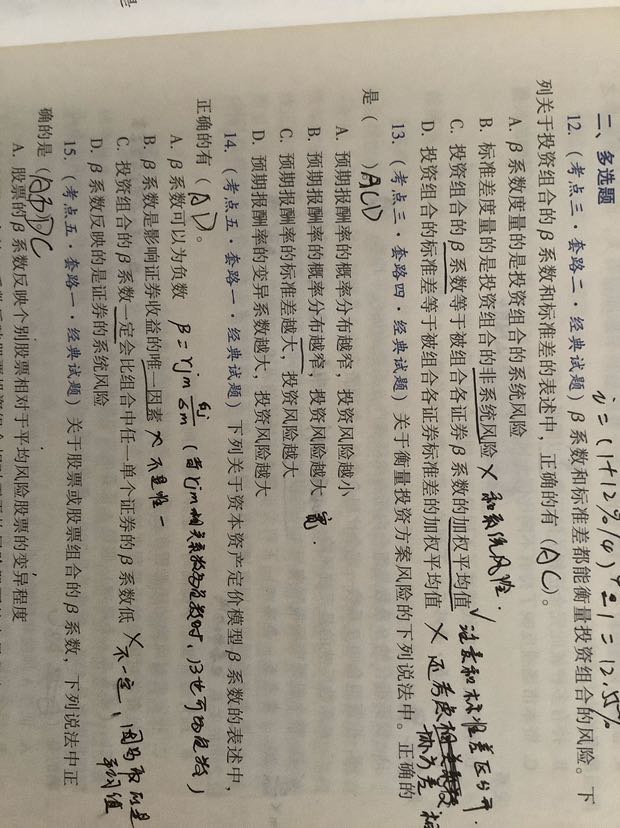 i = (1+12%/4)⁴-1 = 12.55%
二、多选题
12.（考点三·套路二·经典试题）β系数和标准差都能衡量投资组合的风险。下
列关于投资组合的β系数和标准差的表述中，正确的有（AC）。
A. β系数度量的是投资组合的系统风险
B. 标准差度量的是投资组合的非系统风险 × 和系统风险.
C. 投资组合的β系数等于被组合各证券β系数的加权平均值 √ 注意和标准差区分开.
D. 投资组合的标准差等于被组合各证券标准差的加权平均值 × 还考虑
13.（考点三·套路四·经典试题）关于衡量投资方案风险的下列说法中。正确的
是（ ）ACD
A. 预期报酬率的概率分布越窄，投资风险越小
B. 预期报酬率的概率分布越窄，投资风险越大 宽.
C. 预期报酬率的标准差越大，投资风险越大
D. 预期报酬率的变异系数越大，投资风险越大
14.（考点五·套路一·经典试题）下列关于资本资产定价模型β系数的表述中，
正确的有（AD）。
A. β系数可以为负数 β=rjm σj/σm（当rjm相关系数为负数时，β也可为负数）
B. β系数是影响证券收益的唯一因素 × 不是唯一
C. 投资组合的β系数一定会比组合中任一单个证券的β系数低 × 不一定，因为取的是平均值
D. β系数反映的是证券的系统风险
15.（考点五·套路一·经典试题）关于股票或股票组合的β系数，下列说法中正
确的是（ADC
A. 股票的β系数反映个别股票相对于平均风险股票的变异程度